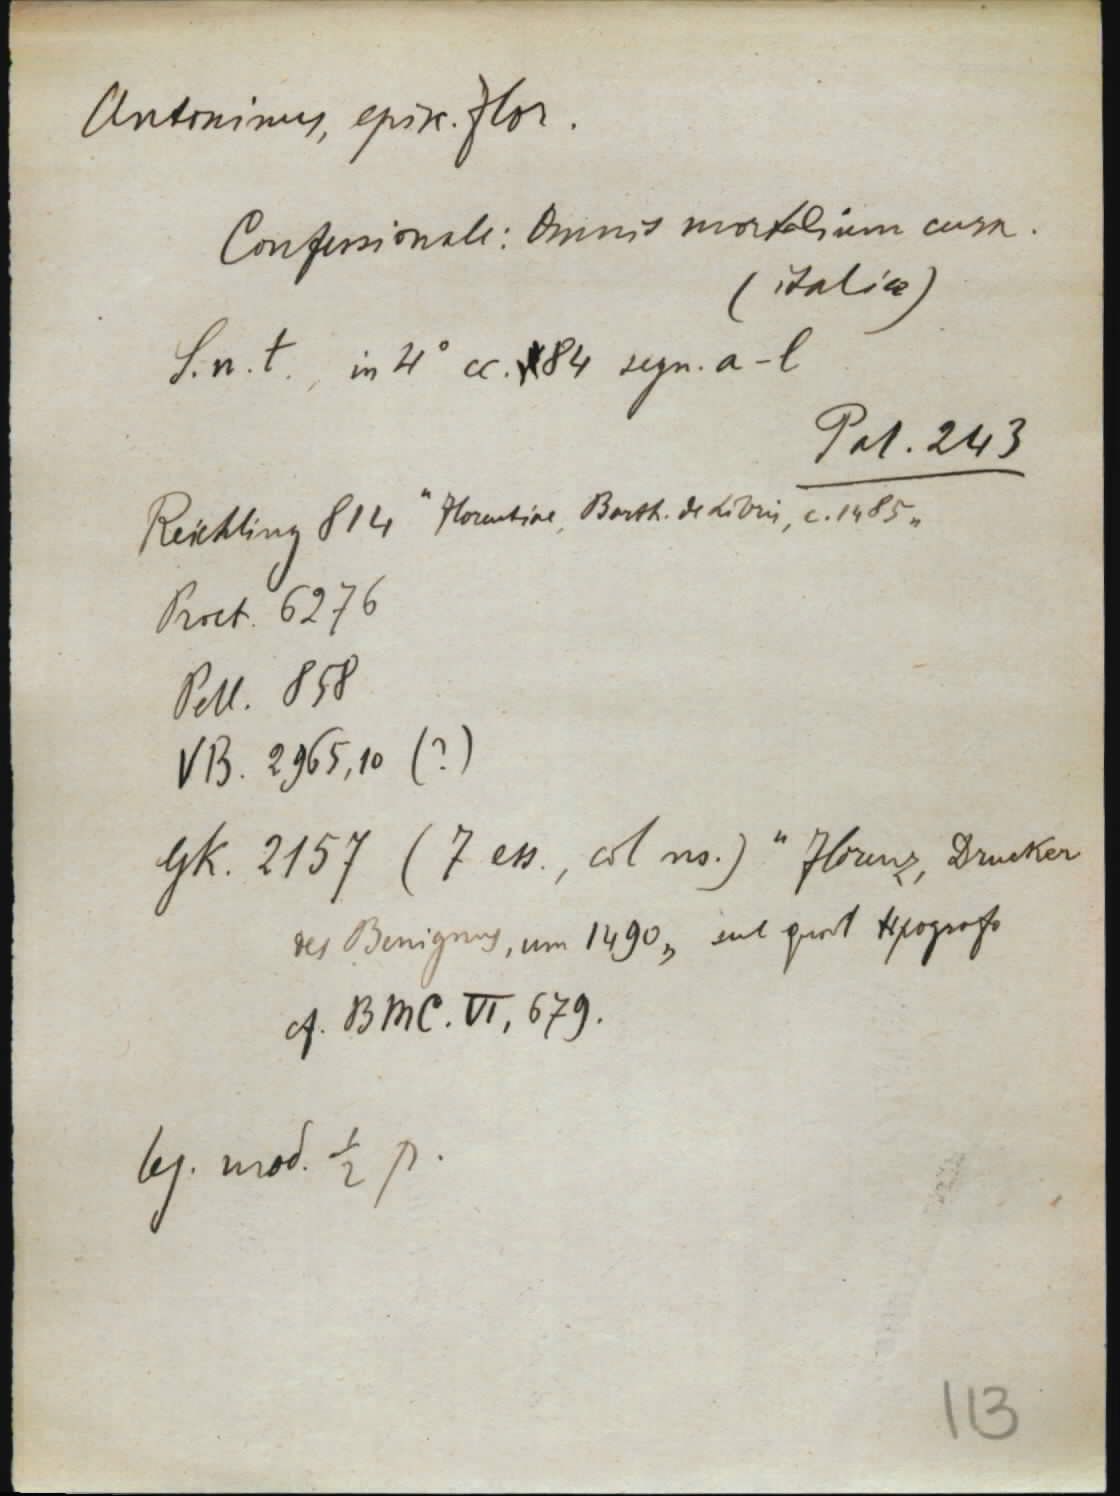 Antoninus, episc. Flor.
Confessionale: Omnis mortalium cura.
(italice)
S.n.t., in 4° cc. 84 segn. a-l
Pal. 243
Reichling 814 "Florentiae, Barth. de Libris, c. 1485„
Proct. 6276
Pell. 858
VB. 2965,10 (?)
GK. 2157 (7 ess., col ns.) "Florenz, Drucker
des Benignus, um 1490„ sul qual tipografo
cf. BMC. VI, 679.
leg. mod. ½ p.
113